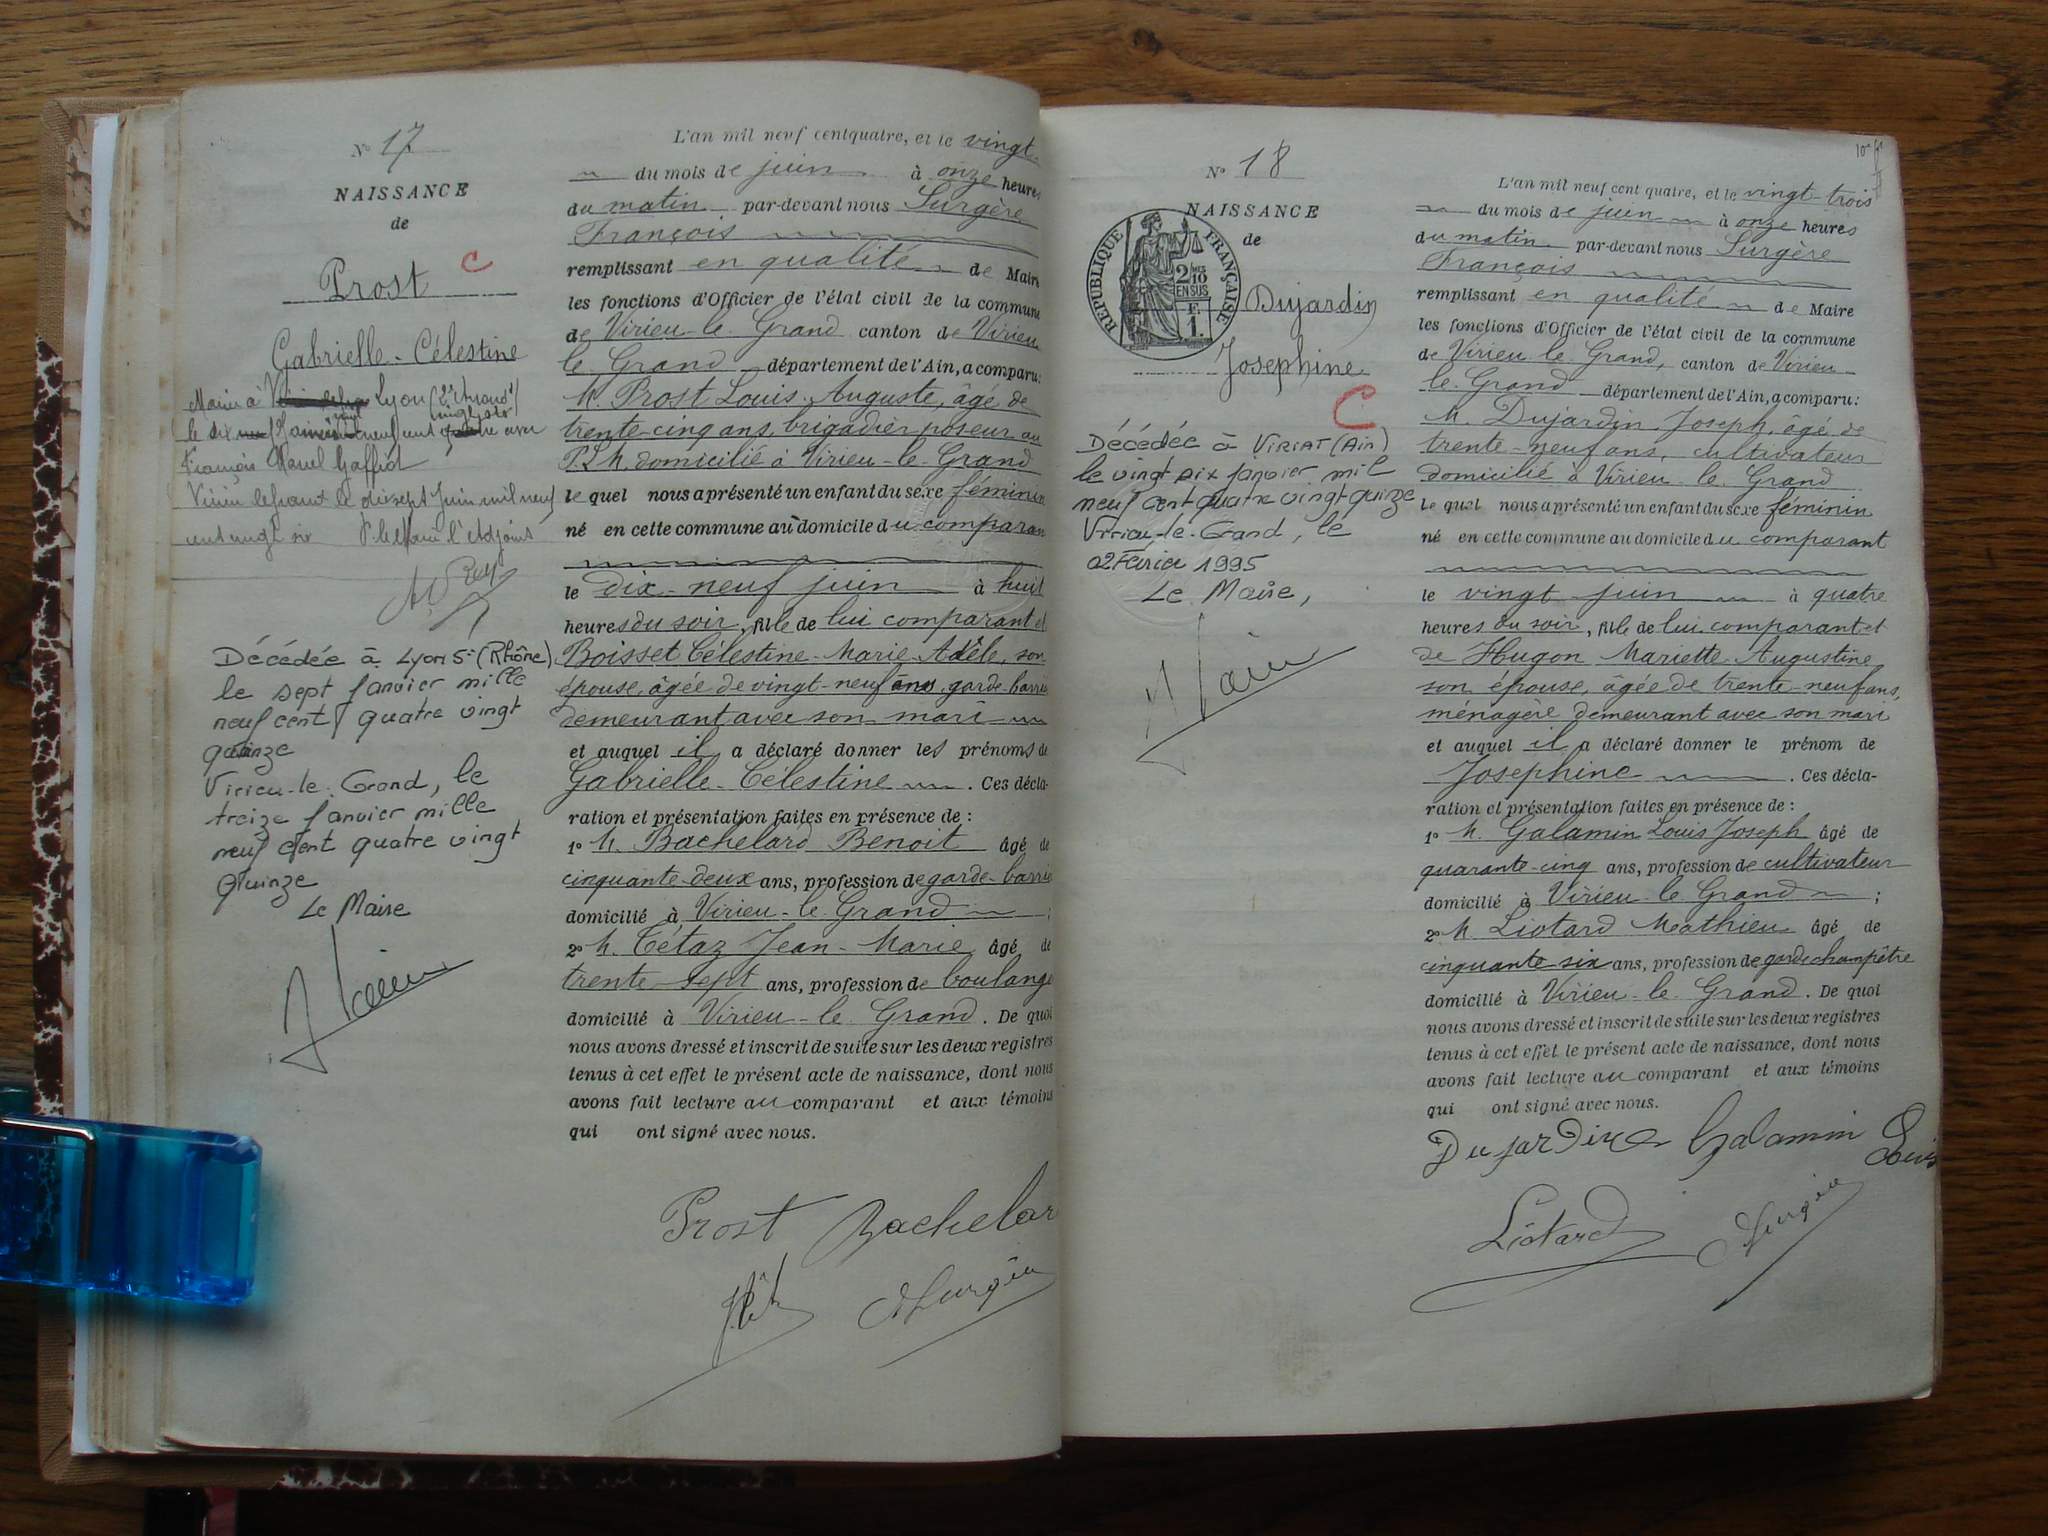 N° 17
NAISSANCE
de
Prost
C
Gabrielle-Célestine
Mariée à Lyon
le dix
François Marcel Gaffiot
Virieu le grand le dix sept Juin mil neuf
cent vingt six P. le Maire l'Adjoint
Rey
Décédée à Lyon 5e (Rhône)
le sept Janvier mille
neuf cent quatre vingt
quinze
Virieu-le-Grand, le
treize Janvier mille
neuf cent quatre vingt
quinze
Le Maire
L'an mil neuf cent quatre, et le vingt
du mois de juin à onze heures
du matin par-devant nous Surgère
François
remplissant en qualité de Maire
les fonctions d'Officier de l'état civil de la commune
de Virieu-le-Grand canton de Virieu
le Grand département de l'Ain, a comparu:
M. Prost Louis-Auguste, âgé de
trente-cinq ans, brigadier poseur au
P.L.M. domicilié à Virieu-le-Grand
le quel nous a présenté un enfant du sexe féminin
né en cette commune au domicile du comparan
le dix-neuf juin à huit
heures du soir, fille de lui comparant et
Boisset Célestine-Marie-Adèle, son
épouse, âgée de vingt-neuf ans, garde-barriè
demeurant avec son mari
et auquel il a déclaré donner les prénoms de
Gabrielle-Célestine. Ces décla-
ration et présentation faites en présence de:
1° M. Bachelard Benoit âgé de
cinquante-deux ans, profession de garde-barriè
domicilié à Virieu-le-Grand;
2° M. Tétaz Jean-Marie âgé de
trente-sept ans, profession de boulange
domicilié à Virieu-le-Grand. De quoi
nous avons dressé et inscrit de suite sur les deux registres
tenus à cet effet le présent acte de naissance, dont nous
avons fait lecture au comparant et aux témoins
qui ont signé avec nous.
Prost Bachelar
Surgère
N° 18
NAISSANCE
de
RÉPUBLIQUE FRANÇAISE
2/10 MES
EN SUS
F.
1.
Dujardin
Josephine
C
Décédée à VIRIAT (Ain)
le vingt six janvier mil
neuf cent quatre vingt quinze
Virieu-le-Grand, le
02 Février 1995
Le Maire,
L'an mil neuf cent quatre, et le vingt-trois
du mois de juin à onze heures
du matin par-devant nous Surgère
François
remplissant en qualité de Maire
les fonctions d'Officier de l'état civil de la commune
de Virieu-le-Grand, canton de Virieu-
le-Grand département de l'Ain, a comparu:
M. Dujardin Joseph, âgé de
trente-neuf ans, cultivateur
domicilié à Virieu-le-Grand
le quel nous a présenté un enfant du sexe féminin
né en cette commune au domicile du comparant
le vingt juin à quatre
heures du soir, fille de lui comparant et
de Hugon Mariette-Augustine
son épouse, âgée de trente-neuf ans,
ménagère demeurant avec son mari
et auquel il a déclaré donner le prénom de
Josephine. Ces décla-
ration et présentation faites en présence de:
1° M. Galamin Louis Joseph âgé de
quarante-cinq ans, profession de cultivateur
domicilié à Virieu-le-Grand;
2° M. Liotard Mathieu âgé de
cinquante-six ans, profession de garde champêtre
domicilié à Virieu-le-Grand. De quoi
nous avons dressé et inscrit de suite sur les deux registres
tenus à cet effet le présent acte de naissance, dont nous
avons fait lecture au comparant et aux témoins
qui ont signé avec nous.
Dujardin Galamin Louis
Liotard Surgère